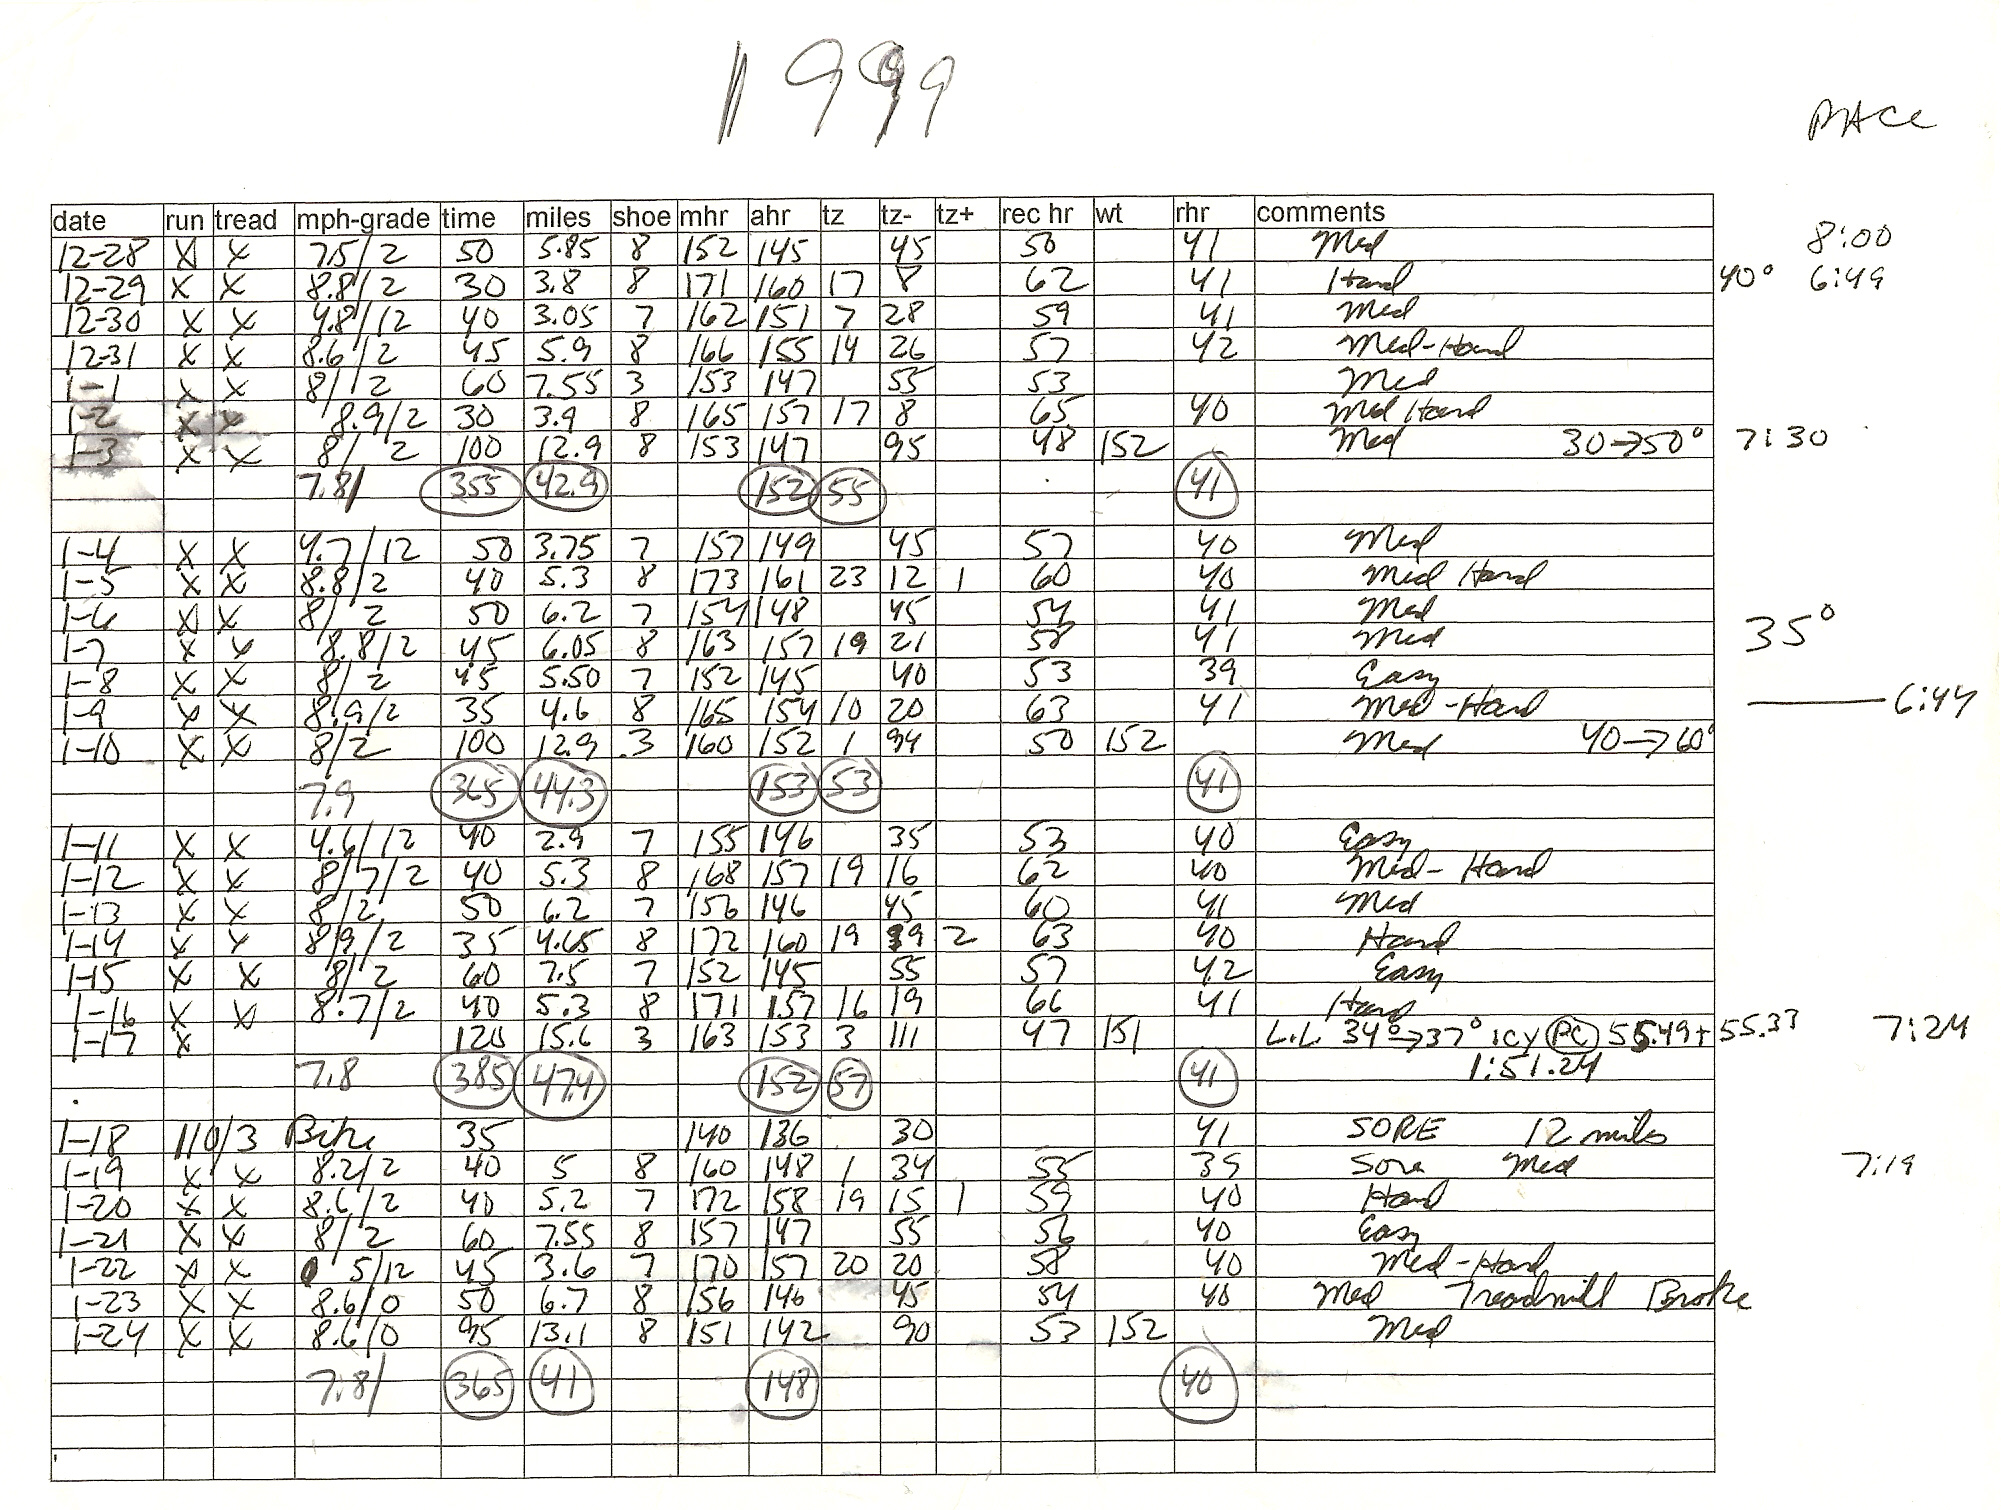 1999
PACE
date run tread mph-grade time miles shoe mhr ahr tz tz- tz+ rec hr wt rhr comments
12-28 X X 7.5/2 50 5.85 8 152 145 45 50 41 Med 8:00
12-29 X X 8.8/2 30 3.8 8 171 160 17 8 62 41 Hard 40° 6:49
12-30 X X 4.8/12 40 3.05 7 162 151 7 28 59 41 Med
12-31 X X 8.6/2 45 5.9 8 166 155 14 26 57 42 Med-Hard
1-1 X X 8/2 60 7.55 3 153 147 55 53 Med
1-2 X X 8.9/2 30 3.9 8 165 157 17 8 65 40 Med Hard
1-3 X X 8/2 100 12.9 8 153 147 95 48 152 Med 30→50° 7:30
7.8/ 355 42.9 152 55 41
1-4 X X 4.7/12 50 3.75 7 157 149 45 57 40 Med
1-5 X X 8.8/2 40 5.3 8 173 161 23 12 1 60 40 Med Hard
1-6 X X 8/2 50 6.2 7 154 148 45 54 41 Med
1-7 X X 8.8/2 45 6.05 8 163 157 19 21 58 41 Med 35°
1-8 X X 8/2 45 5.50 7 152 145 40 53 39 Easy
1-9 X X 8.9/2 35 4.6 8 165 154 10 20 63 41 Med-Hard 6:44
1-10 X X 8/2 100 12.9 3 160 152 1 94 50 152 Med 40→60°
7.9 365 44.3 153 53 41
1-11 X X 4.6/12 40 2.9 7 155 146 35 53 40 Easy
1-12 X X 8/7/2 40 5.3 8 168 157 19 16 62 40 Med-Hard
1-13 X X 8/2 50 6.2 7 156 146 45 60 41 Med
1-14 X X 8/9/2 35 4.65 8 172 160 19 9 2 63 40 Hard
1-15 X X 8/2 60 7.5 7 152 145 55 57 42 Easy
1-16 X X 8.7/2 40 5.3 8 171 157 16 19 66 41 Hard
1-17 X 120 15.6 3 163 153 3 111 47 151 L.L. 34°→37° icy PC 55.49+55.33 7:24
1:51.24
7.8 385 47.4 152 57 41
1-18 110/3 Bike 35 140 136 30 41 SORE 12 miles
1-19 X X 8.2/2 40 5 8 160 148 1 34 55 39 Sore Med 7:19
1-20 X X 8.6/2 40 5.2 7 172 158 19 15 1 59 40 Hard
1-21 X X 8/2 60 7.55 8 157 147 55 56 40 Easy
1-22 X X 5/12 45 3.6 7 170 157 20 20 58 40 Med-Hard
1-23 X X 8.6/0 50 6.7 8 156 146 45 54 40 Med Treadmill Broke
1-24 X X 8.6/0 95 13.1 8 151 142 90 53 152 Med
7.8/ 365 41 148 40